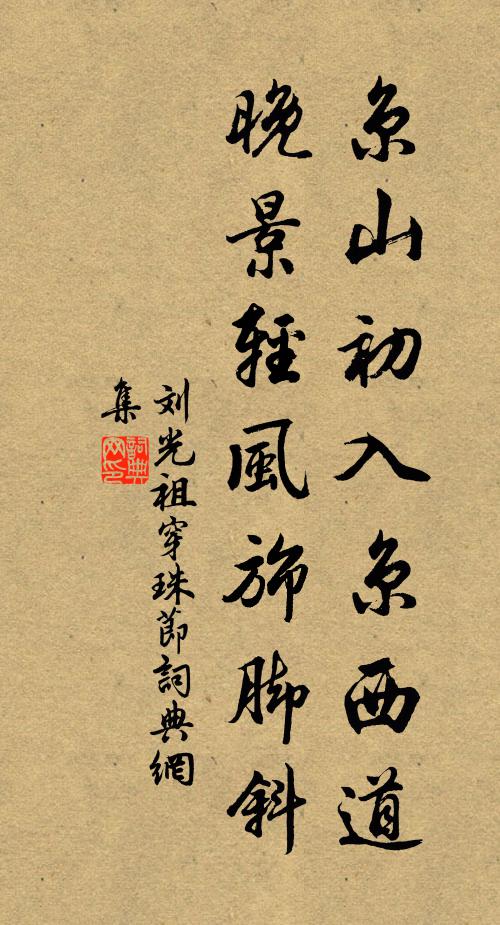 京山初入京西道
晚景輕風旆脚斜
刘光祖穿珠節詞典網
集
詞典網印